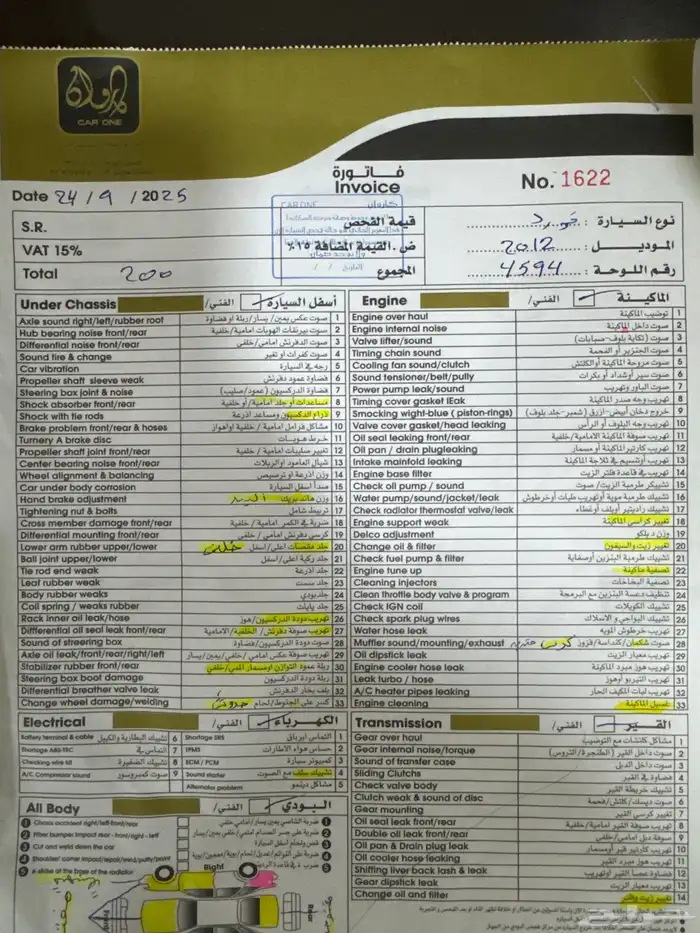 كاروان
CAR ONE
فاتورة
Invoice
No. 1622
Date 24 / 9 / 2025
S.R.
قيمة الفحص
VAT 15%
ض. القيمة المضافة ١٥٪
Total 200 المجموع
نوع السيارة : فورد
الموديل: 2012
رقم اللوحة: 4594
Under Chassis الفني/ أسفل السيارة
Axle sound right/left/rubber root صوت عكس يمين/يسار/ربلة او فضاوة 1
Hub bearing noise front/rear صوت بيرنقات الهوبات امامية/خلفية 2
Differential noise front/rear صوت الدفرنش امامي/خلفي 3
Sound tire & change صوت كفرات او تغير 4
Car vibration رجه في السيارة 5
Propeller shaft sleeve weak فضاوة عمود دفرنش 6
Steering box joint & noise فضاوة الدركسيون (عمود/صليب) 7
Shock absorber front/rear مساعدات او جلد امامية/أو خلفية 8
Shock with tie rods ذراع الدكسيون ومساعد اذرعة 9
Brake problem front/rear & hoses مشاكل فرامل امامية/خلفية واهواز 10
Turnery A brake disc خرط هوبات 11
Propeller shaft joint front/rear تغيير صليبات امامية/خلفية 12
Center bearing noise front/rear شيال العامود والربلات 13
Wheel alignment & balancing وزن أذرعة وترصيص 14
Car under body corrosion صدأ أسفل السيارة 15
Hand brake adjustment وزن هاند بريك اليد 16
Tightening nut & bolts تربيط شامل 17
Cross member damage front/rear ضربة في الكمر امامية/خلفية 18
Differential mounting front/rear كرسي دفرنش امامي/خلفي 19
Lower arm rubber upper/lower جلد مقصات اعلى/اسفل خلفي 20
Ball joint upper/lower جلد ركبة اعلى/اسفل 21
Tie rod end weak جلد أذرعة 22
Leaf rubber weak جلد سست 23
Body rubber weaks جلد بودي 24
Coil spring / weaks rubber جلد يايات 25
Rack inner oil leak/hose تهريب دودة الدركسيون/هوز 26
Differential oil seal leak front/rear تهريب صوفة دفرنش/الخلفية/الامامية 27
Sound of streering box صوت دودة الدركسيون/فضاوة 28
Axle oil leak/front/rear/right/left تهريب صوفة عكس أمامي/خلفي/يمين/يسار 29
Stabilizer rubber front/rear ربلة عمود التوازن اومسمار امامي/خلفي 30
Steering box boot damage ربلة دودة الدركسيون 31
Differential breather valve leak بلف بخار الدفرنش 32
Change wheel damage/welding كسر على الجنوط/لحام 33
Engine الفني/ الماكينة
Engine over haul توضيب الماكينة 1
Engine internal noise صوت داخل الماكينة 2
Valve lifter/sound صوت (تكاية بلوف-صبابات) 3
Timing chain sound صوت الجنزير او الفحمة 4
Cooling fan sound/clutch صوت مروحة الماكينة أوالكلتش 5
Sound tensioner/belt/pully صوت سير أوشداد أو بكرات 6
Power pump leak/sound صوت الباور وتهريب 7
Timing cover gasket lEak تهريب وجه صدر الماكينة 8
Smocking wight-blue ( piston-rings) خروج دخان أبيض-ازرق (شمبر-جلد بلوف) 9
Valve cover gasket/head leaking تهريب وجه البلوف أو الرأس 10
Oil seal leaking front/rear تهريب صوفة الماكينة الامامية/خلفية 11
Oil pan / drain plugleaking تهريب كارتير الماكينة أو مسمار 12
Intake mainfold leaking تهريب أوتنسيم في ثلاجة الماكينة 13
Engine base filter تهريب في قاعدة فلتر الزيت 14
Check oil pump / sound تشييكر طرمبة الزيت/صوت 15
Water pump/sound/jacket/leak تشييك طرمبة موية أوتهريب طبات أوخرطوش 16
Check radiator thermostat valve/leak تشييك راديتير أوبلف أوغطاء 17
Engine support weak تغيير كراسي الماكينة 18
Delco adjustment وزن ديلكو 19
Change oil & filter تغيير زيت والسيفون 20
Check fuel pump & filter تشييك طرمبة البنزين أوصفاية 21
Engine tune up تصفية ماكينة 22
Cleaning injectors تصفية البخاخات 23
Clean throttle body valve & program تنظيف دعسة البنزين مع البرمجة 24
Check IGN coil تشييك الكويلات 25
Check spark plug wires تشييك البواجي و الاسلاك 26
Water hose leak تهريب خرطوش الموية 27
Muffler sound/mounting/exhaust صوت شكمان/كنداسة/قزوز 28
Oil dipstick leak تهريب معيار الزيت 29
Engine cooler hose leak تهريب هوز مبرد الماكينة 30
Leak turbo / hose تهريب التيربو أوهوز 31
A/C heater pipes leaking تهريب ليات المكيف الحار 32
Engine cleaning غسيل الماكينة 33
Electrical الفني/ الكهرباء
Battery terminal & cable تشييك البطارية والكيبل 6
Shortage ABS-TRC التماس في 7
Checking wire kit تشييك الضفيرة 8
A/C Compressor sound صوت كمبروسور 9
Shortage SRS التماس ايرباق 1
TPMS حساس هواء الاطارات 2
ECM / PCM كمبيوتر سيارة 3
Sound starter تشييك سلف مع الصوت 4
Alternator problem مشاكل دينمو 5
Transmission الفني/ القير
Gear over haul مشاكل كلتشات مع التوضيب 1
Gear internal noise/torque صوت داخل القير (الطنجرة/التروس) 2
Sound of transfer case صوت داخل الدبل 3
Sliding Clutchs فضاوة في القير 4
Check valve body تشييك خريطة القير 5
Clutch weak & sound of disc صوت ديسك/كلتش/فحمة 6
Gear mounting تغيير كرسي القير 7
Oil seal leak front/rear تهريب صوفة القير امامية/خلفية 8
Double oil leak front/rear تهريب صوفة دبل امامي/خلفي 9
Oil pan & Drain plug leak تهريب كارتير قير أومسمار 10
Oil cooler hose leaking تهريب هوز مبرد القير 11
Shifting liver back lash & leak فضاوة عصا القير اوتهريب 12
Gear dipstick leak تهريب معيار الزيت 13
Change oil and filter تغيير زيت وفلتر 14
All Body الفني/ البودي
1 Chasis accident right/left-front/rear
2 Fiber bumper impact rear - front/right - left
3 Cut and weld down the car
Right